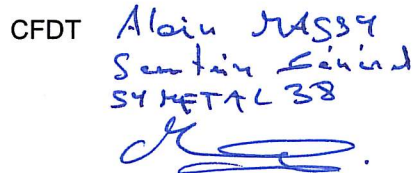 CFDT Alain MASSY
Secrétaire Général
SYMETAL 38